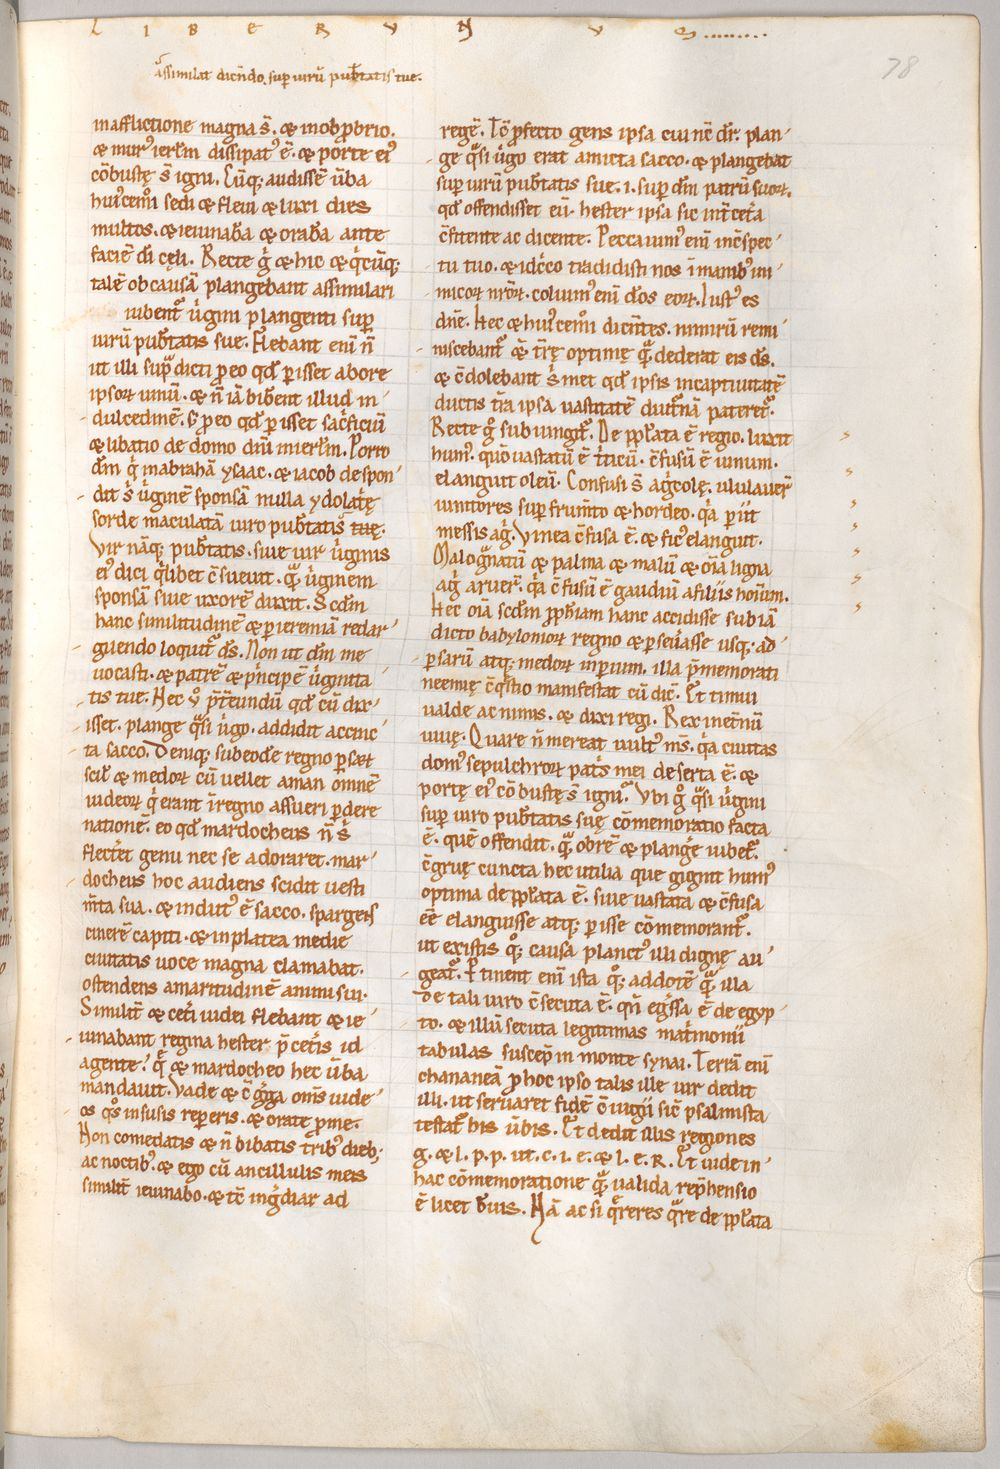 L I B E R V N V S
assimilat dicendo. sup uirũ pubtatis tue.
78
in afflictione magna s̃. & in obprobrio.
& mur' ierłm dissipat' ẽ. & porte ei'
cõbustę s̃ igni. Cũq; audissẽ ũba
hui'cemoi sedi & fleui & luxi dies
multos. & ieiunabã & orabã ante
faciẽ dĩ cęli. Recte g̊ & hic & q̃cũq;
talẽ ob causã plangebant assimilari
iubent' ủgini plangenti sup
uirũ pubtatis sue. Flebant enĩ ñ
ut illi sup̃dicti p eo qd pisset ab ore
ipsoꝝ uinũ. & ñ iã bibent illud in
dulcedinẽ. s; p eo qd pisset sacrificiũ
& libatio de domo dñi in ierłm. Porro
dñm q̃ in abrahã ysaac. & iacob despon'
dit s̃ ủginẽ sponsã nulla ydolatrię
sorde maculatã uiro pubtatis tuę.
Vir nãq; pubtatis. siue uir ủginis
ei' dici q̃libet c̃sueuit. q̃ ủginem
sponsã siue uxorẽ duxit. Scdm
hanc similitudinẽ & p ieremiã redar'
guendo loquit' ds̃. Non ut dñm me
uocasti. & patrẽ & pncipẽ ủginita'
tis tue. Hec ů p̃t̃eundũ qd cũ dix'
isset. plange q̃si ủgo. addidit accinc'
ta sacco. Deniq; sub eodẽ regno psaꝝ
scił & medoꝝ cũ uellet aman omnẽ
iudeoꝝ q̃ erant ĩ regno assueri pdere
nationẽ. eo qd mardocheus ñ s̃
flectẽt genu nec se adoraret. mar'
docheus hoc audiens scidit uesti
m̃ta sua. & indut' ẽ sacco. spargẽs
cinerẽ capiti. & in platea medie
ciuitatis uoce magna clamabat.
ostendens amaritudinẽ animi sui.
Similit̃ & cet̃i iudei flebant & ie'
iunabant regina hester p̃ cet̃is id
agente. q̃ & mardocheo hec ũba
mandauit. Vade & c̃gr̃ga om̃s iude'
os q̃s in susis repperis. & orate p me.
Non comedatis & ñ bibatis trib' dieb;
ac noctib'. & ego cũ ancillulis meis
similit̃ ieiunabo. & tc̃ ingrediar ad
regẽ. Iõ pfecto gens ipsa cui nc̃ dr̃. plan'
ge q̃si ủgo erat amicta sacco. & plangebat
sup uirũ pubtatis sue. i. sup dm̃ patrũ suoꝝ.
qd offendisset eũ. hester ipsa sic int̃ cet̃a
c̃fitente ac dicente. Peccauim' enĩ in c̃spec'
tu tuo. & idc̃co tradidisti nos ĩ manib' ini'
micoꝝ nr̃oꝝ. coluim' enĩ d̃os eoꝝ. Iust' es
dñe. Hec & hui'cemoi dicẽntes. nimirũ remi'
niscebant' & tr̃ę optimę q̃ dederat eis ds̃.
& c̃dolebant s̃met qd ipsis in captiuitatẽ
ductis tr̃a ipsa uastitatẽ diut̃nã pateret'.
Recte g̊ subiungit'. De pp̃lata ẽ regio. luxit
hum'. quõ uastatũ ẽ t̃ticũ. c̃fusũ ẽ uinum.
elanguit oleũ. Confusi s̃ ag̃colę. ululauer̃
uinitores sup frum̃to & hordeo. q̃a piit
messis ag̃. Vinea c̃fusa ẽ. & fic' elanguit.
Malog̃natũ & palma & malũ & oĩa ligna
ag̃ aruer̃. q̃a c̃fusũ ẽ gaudiũ a filiis hoĩum.
Hec oĩa scdm pphiam hanc accidisse sub iã
dicto babylonioꝝ regno & pseũasse usq; ad'
psarũ atq; medoꝝ inpium. illa p̃memorati
neemię c̃q̃stio manifestat cũ dic̃. Et timui
ualde ac nimis. & dixi regi. Rex in et̃nũ
uiuę. Quare ñ mereat uult' m̃s. q̃a ciuitas
dom' sepulchroꝝ pat̃s mei deserta ẽ. &
portę ei' cõbustę s̃ igni. Vbi g̊ q̃si ủgini
sup uiro pubtatis suę cõmemoratio facta
ẽ. quẽ offendit. q̃ ob rẽ & plangẽ iubet'.
c̃gruę cuncta hec utilia que gignit hum'
optima de pp̃lata ẽ. siue uastata & c̃fusa
eẽ elanguisse atq; pisse cõmemorant'.
ut existis q̊; causa planct' illi dignę au'
geat'. Ptinent enĩ ista q̊; ad dotẽ q̃ illa
de tali uiro c̃secuta ẽ. qñ egr̃ssa ẽ de egyp'
to. & illũ secuta legitimas matr̃monii
tabulas suscep̃ in monte synai. Terrã enĩ
chananeã p hoc ipso talis ille uir dedit
illi. ut seruaret fidẽ c̃iugii sic̃ psalmista
testat' his ủbis. Et dedit illis regiones
g. & l. p. p. ut. c. i. e. & l. e. R. Et uide in'
hac cõmemoratione q̃ ualida rep̃hensio
ẽ licet b̃uis. Nã ac si q̃reres q̃re de pp̃lata